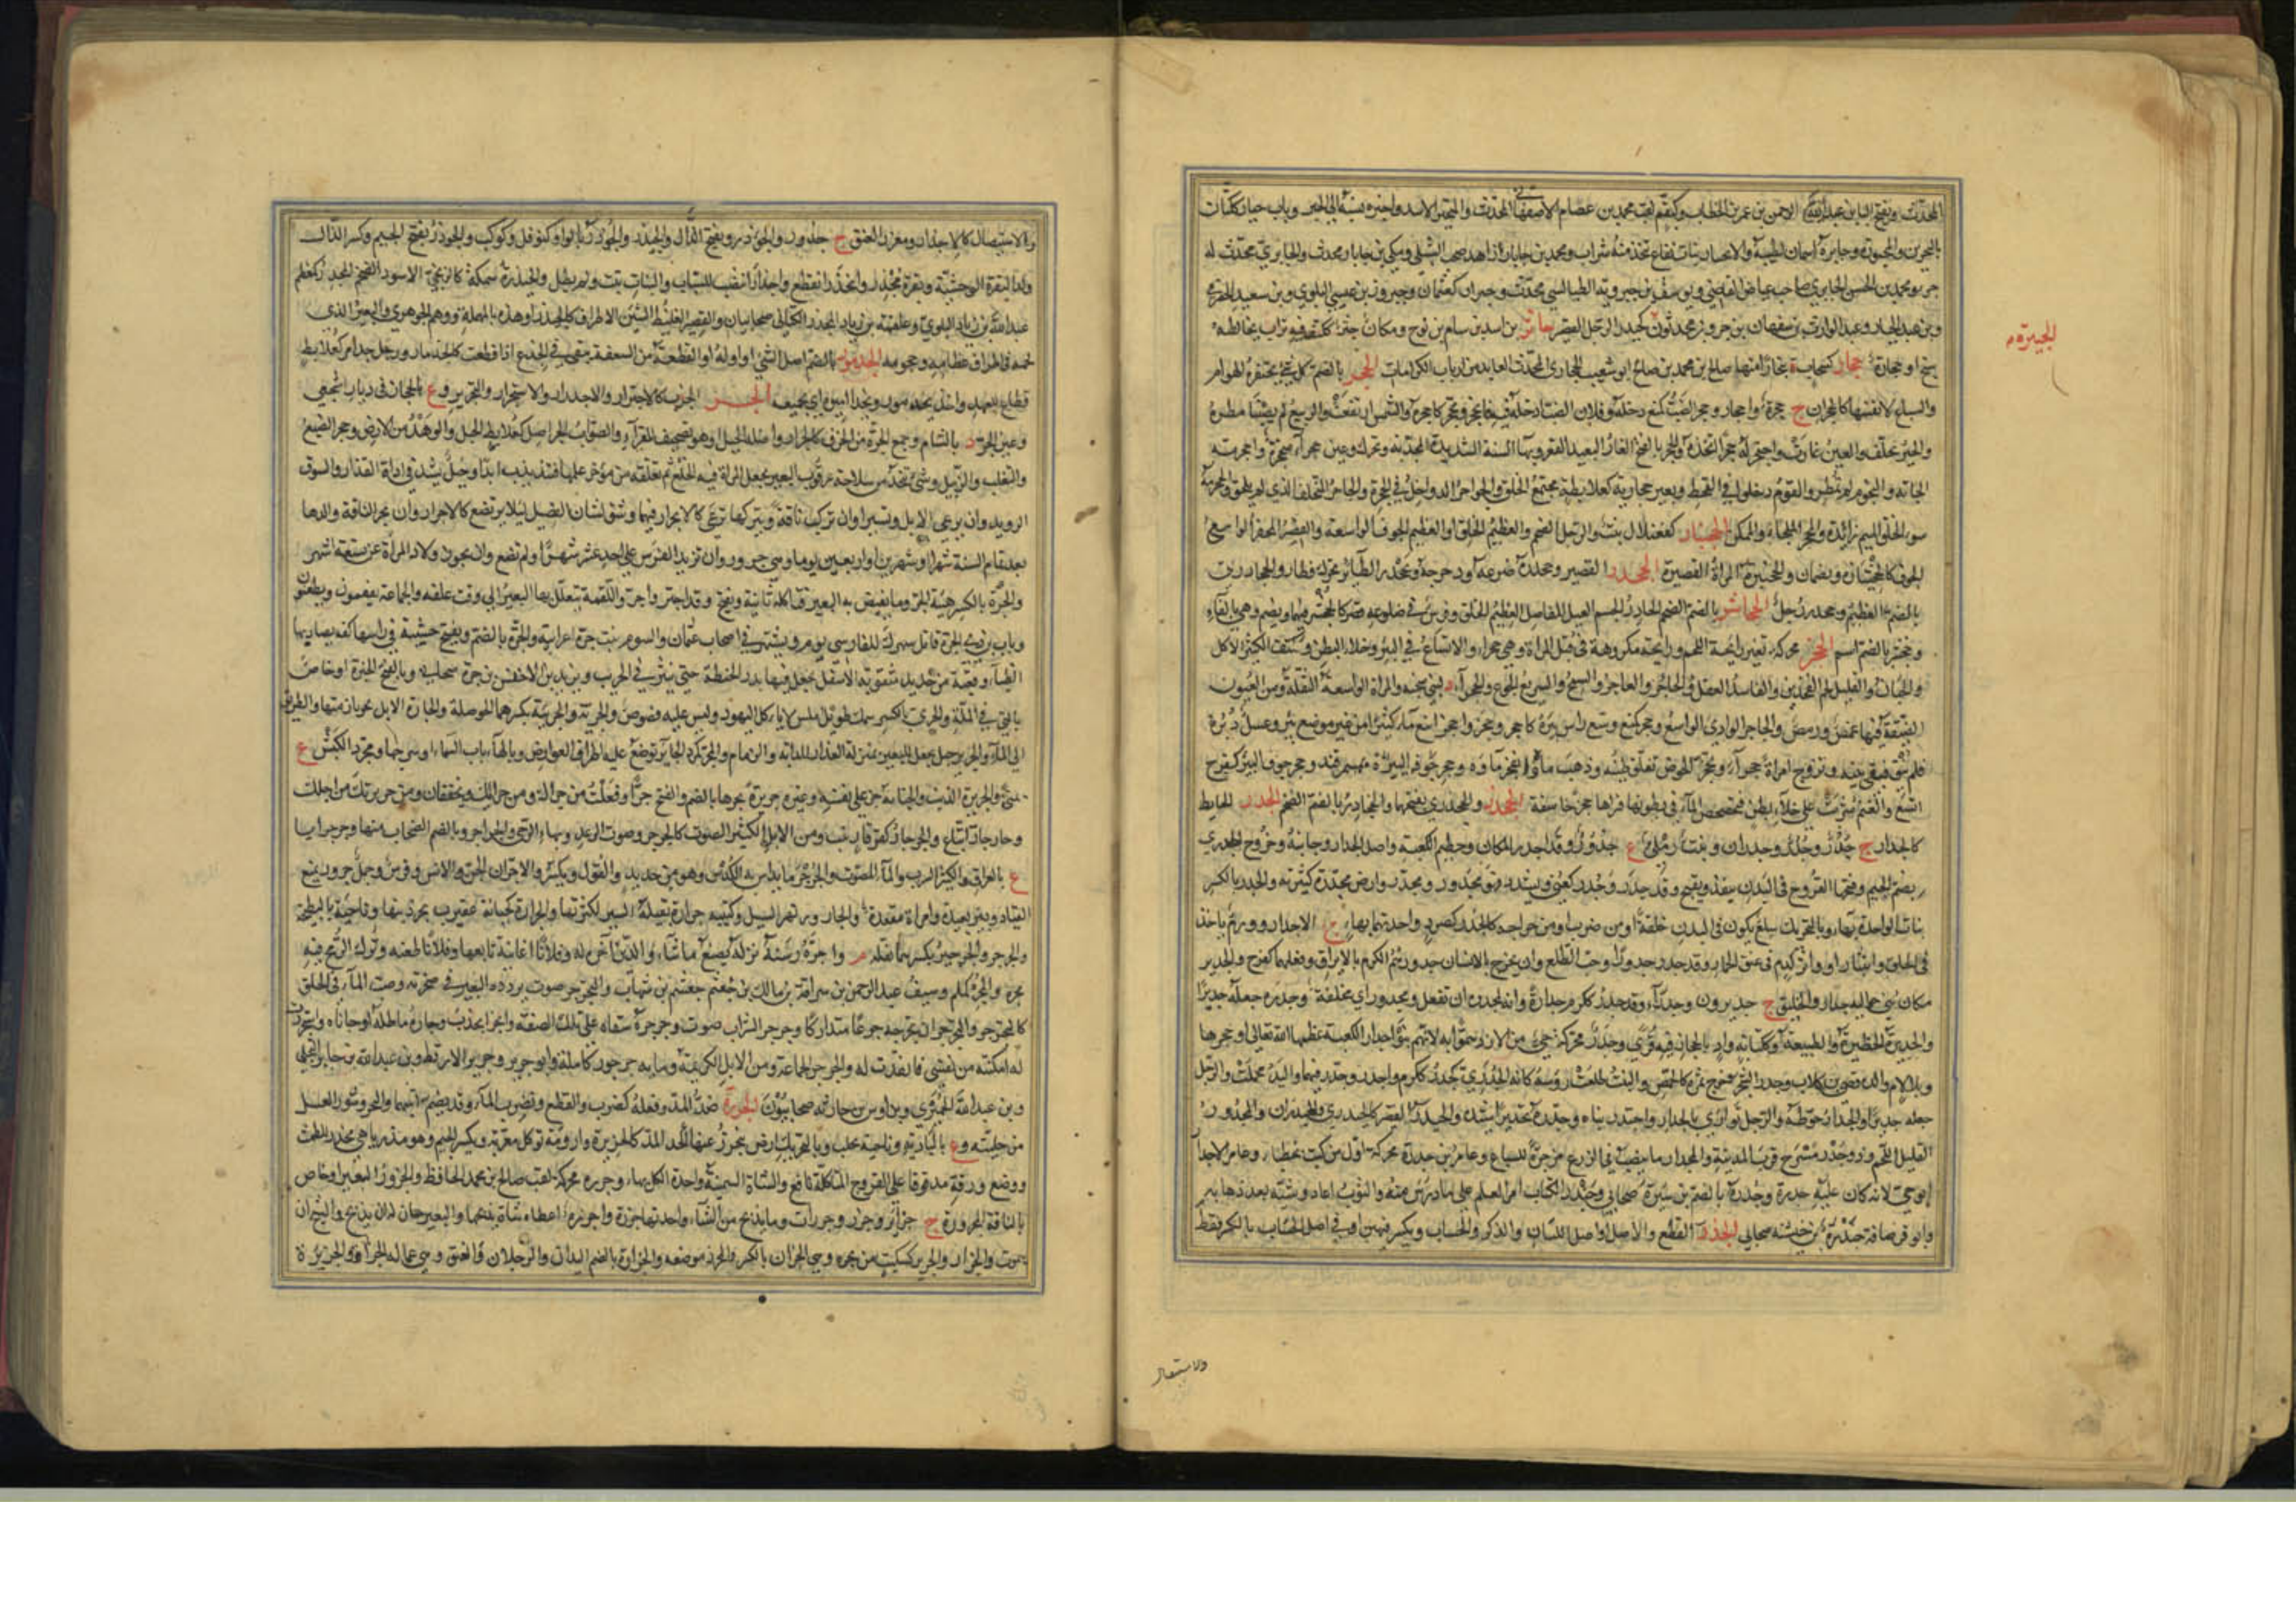 المحدث وبفتح البا بن عبد الرحمن بن عمر بن الخطاب وكبقم لقب محمد بن عصام الاصفهاني المحدث والمتجبر الاسد واجبره نسبه الى الجبر وباب جبار ككتان
بالبحرين والمجبورة وجابرة اسمان لطيبة والانجبار نبات نفاع يتخذ منه شراب ومحمد بن جابار زاهد صحب الشبلي ومكي بن جابار محدث والجابري محدث له
جزء ومحمد بن الحسن الجابري صاحب عياض القاضي ويوسف بن جبرويه الطيالسي محدث وجبران كعثمان وجبرون بن عيسى البلوي وبن سعيد الحضرمي
وبن عبد الجبار وعبد الوارث بن سفيان بن جبرون محدثون كحيدر الرجل القصير جاثر بن ارم بن سام بن نوح ومكان جثر ككتف فيه تراب يخالطه
سبخ او حجارة جحار كسحابة ببخارا منها صالح بن محمد بن صالح ابو شعيب الجحاري المحدث العابد من ارباب الكرامات الجحر بالضم كل شيء تحتفره الهوام
والسباع لانفسها كالجحران ج جحرة واجحار وجحر الضب كمنع دخله وفلان الضب ادخله فيه فانجحر وتجحر كاجحره والشمس ارتفعت والربيع لم يصبنا مطره
والخير تخلف والعين غارت واجتحر له جحرا اتخذه والجحر بالفتح الغار البعيد القعر وبهاء السنة الشديدة المجدبة ويحرك وعين جحراء متجحرة واجحرته
الجاته والنجوم لم تمطر والقوم دخلوا في القحط وبعير جحارية كعلابطة مجتمع الخلق والجواحر الدواخل في الجحرة والجاحر المتخلف الذي لم يلحق والجحرمة
سوء الخلق والميم زائدة والمجحر الملجاء والمكمن الجحنبار كعقنفلال نبت والرجل الضخم والعظيم الخلق او العظيم الجوف الواسعه والقصير المجفر الواسع
الجوف كالجحنبارة ويضمان والجحنبرة المراة القصيرة الجحدر القصير وجحدره صرعه ودحرجه وتجحدر الطائر تحرك فطار والجحادري
بالضم العظيم وجحدر رجل الجحاشر بالضم الضخم الحادر الجسم العبل المفاصل العظيم الخلق وفرس في ضلوعه قصر كالجحشر فيهما ويضم وهي بالهاء
وجحشر بالضم اسم الجخر محركة تغير رائحة اللحم ورائحة مكروهة في قبل المراة وهي جخراء والاتساع في البئر وخلاء البطن وككتف الكثير الاكل
والجبان والقليل لحم الفخذين والفاسد العقل والجاخر والعاجز والسمج والسريع الجوع والجخراء لبنى شجنه والمراة الواسعة التفلة ومن العيون
الضيقة فيها غمص ورمص والجاخر الوادي الواسع وجخر كمنع وسع راس بئره كاجخر وجخر واجخر انبع ماء كثيرا من غير موضع بئر وغسل دبره
فلم ينق فبقي نتنه وتزوج امراة جخراء وتجخر الحوض تفلق طينه وذهب ماؤه انفجر ماؤه وجخر جوف البئر بمهم قند وجخر جوف البئر كفرح
اتسع والغنم شربت على خلاء بطن فتخضخض الماء في بطونها فتراها جخرا خاسفة الجخدر والجخدري بفتحهما والجخادر بالضم الضخم الجدر الحايط
كالجدار ج جدر وجدر وجدران ونبت رملي ع جدور وقد اجدر المكان وحطيم الكعبة واصل الجدار وجانبه وخروج الجدري
بضم الجيم وفتحها القروح في البدن ينفط ويقيح وقد جدر وجدر كعني ويشدد فهو مجدور ومجدر وارض مجدرة كثيرته والجدر بالكسر
نبات الواحدة بهاء وبالتحريك سلع يكون في البدن خلقة او من ضرب او من جراحه كالجدر كصرد واحدتهما بهاء ج الاجدار وورم ياخذ
في الحلق وانتبار او واثر كدم في عنق الحمار وقد جدر جدورا وحب الطلع وان يخرج بالانسان جدر وختم الكرم بالايراق وفعلهما كفرح والجدير
مكان بني حواليه جدار والخليق ج جديرون وجدراء وقد جدر ككرم جدارة وانه لمجدرة ان تفعل ومجدور اي مخلقة وجدره جعله جديرا
والجديرة الحظيرة والطبيعة وككتابة واد بالحجاز فيه قرى وجدرة محركة حي من الازد سموا به لانهم بنوا جدار الكعبة عظمها الله تعالى او حجرها
وبلا لام والد قصي بن كلاب وجدر الشجر خرج ثمره كالحمص والنبت طلعت رؤسه كانه الجدري كجدر ككرم واجدر وجدر فيهما واليد مجلت والرجل
جعله جديرا والجدار حوطه والرجل توارى بالجدار واجتدر بناه وجدره تجديرا شيده والجيدر القصير كالجيدري والجيدران والمجدور
القليل اللحم وذو جدر مسرح قرب المدينة والمجدار ما ينصب في الزرع مزجرة للسباع وعامر بن جدرة محركة اول من كتب بخطنا وعامر الاجدار
ابو حي لانه كان عليه جدرة وجدرة بالضم بن سبرة صحابي وجندر الكتاب امر القلم على ما درس منه والثوب اعاد وشيه بعد ذهابه
وابو قرصافة جندرة بن خيشنة صحابي الجذر القطع والاصل او اصل اللسان والذكر والحساب ويكسر فيهن او في اصل الحساب بالكسر فقط
الجيدرة
والاستيصال
والاستيصال كالاجذار ومغرز العنق ج جذور والجؤذر ويفتح الذال والجيذر والجوذر بالواو كفوفل وكوكب والجوذر بفتح الجيم وكسر الذال
ولد البقرة الوحشية وبقرة مجذر وانجذر انقطع واجذار انتصب للسباب والنبات نبت ولم يطل والجيذرة سمكة كالزنجي الاسود الضخم المجذر كمعظم
عبد الله بن زياد البلوي وعلقمة بن المجذر الكناني صحابيان والقصير الغليظ الشثن الاطراف كالجيذر وهذه بالمهملة ووهم الجوهري والبعير الذي
لحمه في اطراف عظامه وحجومه الجذمور بالضم اصل الشيء او اوله او القطعة من السعفة تبقى في الجذع اذا قطعت كالجذمار ورجل جذامر كعلابط
قطاع للعهد واخذه بجذموره وبجذاميره اي بجميعه الجر الجذب كالاجترار والاجدرار والاستجرار والتجرير وع بالحجاز في ديار اشجع
وعين الجر د بالشام وجمع الجرة من الخزف كالجرار واصل الجبل او هو تصحيف للفراء والصواب الجراصل كعلابط الجبل والوهدة من الارض وجحر الضبع
والثعلب والزبيل وشيء يتخذ من سلاخة عرقوب البعير تجعل المراة فيه الخلع ثم تعلقه من مؤخر عكمها فتذبذب ابدا وحبل يشد في اداة الفدان والسوق
الرويد وان ترعى الابل وتسير او ان تركب ناقة وتتركها ترعى كالانجرار فيهما وشق لسان الفصيل ليلا يرتضع كالاجرار وان يجر الناقة ولدها
بعد تمام السنة شهرا او شهرين او اربعين يوما وهي جرور وان تزيد الفرس على احد عشر شهرا ولم تضع وان يجوز ولاد المراة عن تسعة اشهر
والجرة بالكسر هيئة الجر وما يفيض به البعير فياكله ثانية ويفتح وقد اجتر واجر واللقمة يتعلل بها البعير الى وقت علفه والجماعة يقيمون ويظعنون
وباب بن ذي الجرة قاتل سهرك الفارسي يوم ريشهر في اصحاب عثمان والسوم بنت جرة اعرابية والجرة بالضم ويفتح خشبة في راسها كفة يصاد بها
الظباء وقعبة من حديد مثقوبة الاسفل يجعل فيها بذر الحنطة حتى يبذر في الحرب ويزيد بن الاخنس بن جرة صحابي وبالفتح الخبزة او خاص
بالتي في الملة والجري بالكسر سمك طويل املس لا ياكله اليهود وليس عليه فصوص والجرية والجريئة بكسرهما الحوصلة والجارة الابل تجر بازمتها والطريق
الى الماء والجرير حبل يجعل للبعير بمنزلة العذار للدابة والزمام والمجر كمرد الجائز توضع عليه اطراف العوارض وبالهاء باب السماء او شرجها ومجر الكبش ع
بمنى والجريرة الذنب والجناية جر على نفسه وغيره جريرة يجرها بالضم والفتح جرا وفعلت من جراك ومن جرائك ويخففان ومن جريرتك من اجلك
وحار جار اتباع والجرجار كقرقار نبت ومن الابل الكثير الصوت كالجرجر وصوت الرعد وبهاء الرحى والجراجر وبالضم الصخاب منها وجرجرايا
ع بالعراق والكثير الشرب والماء المصوت والجرجر ما يداس به الكدس وهو من حديد والفول ويكسر والاجران الجن والانس وفرس وجمل جرور يمنع
القياد وبئر بعيدة وامراة مقعدة والجار ورنهر السيل وكتيبة جرارة ثقيلة السير لكثرتها والجرارة كجبانة عقيرب تجر ذنبها وناحية بالبطيحة
والجرجر والجرجير بكسرهما بقلة م واجره رسنه تركه يصنع ما شاء والدين اخره له وفلانا اغانيه تابعها وفلانا طعنه وترك الرمح فيه
يجره والمجر كملم وسيف عبد الرحمن بن سراقة بن مالك بن جعشم بن شهاب والجرجرة صوت يردده البعير في حنجرته وصب الماء في الحلق
كالتجرجر والتجرجر ان تجرعه جرعا متداركا وجرجر الشراب صوت وجرجره سقاه على تلك الصفة وانجر انجذب وجاره ماطله او جاناه واستجررت
له امكنته من نفسي فانقدت له والجرجر الجماعة ومن الابل الكريمة وماية جرجور كاملة وابو جرير وجرير الارقط وبن عبد الله بن جابر البجلي
وبن عبد الله الحميري وبن اوس بن حارثه صحابيون الجزر ضد المد وفعله كضرب والقطع ونضوب الماء وقد يضم آتيهما والبحر وشور العسل
من خليته وع بالبادية وناحية بحلب وبالتحريك ارض ينجزر عنها المد كالجزيرة وارومة توكل معربة وبكسر الجيم وهو مدر باهي محدر للطمث
ووضع ورقه مدقوقا على القروح المتاكلة نافع والشاة السمينة واحدة الكل بهاء وجزرة محركة لقب صالح بن محمد الحافظ والجزور البعير او خاص
بالناقة المجزورة ج جزائر وجزر وجزرات وما يذبح من الشاء واحدتها جزرة واجزره اعطاه شاة يذبحها والبعير حان له ان يذبح والشيخ ان
يموت والجزار والجزير كسكيت من ينحره وهي الجزارة بالكسر والمجزر موضعه والجزارة بالضم اليدان والرجلان والعنق وهي عمالة الجزار والجزيرة